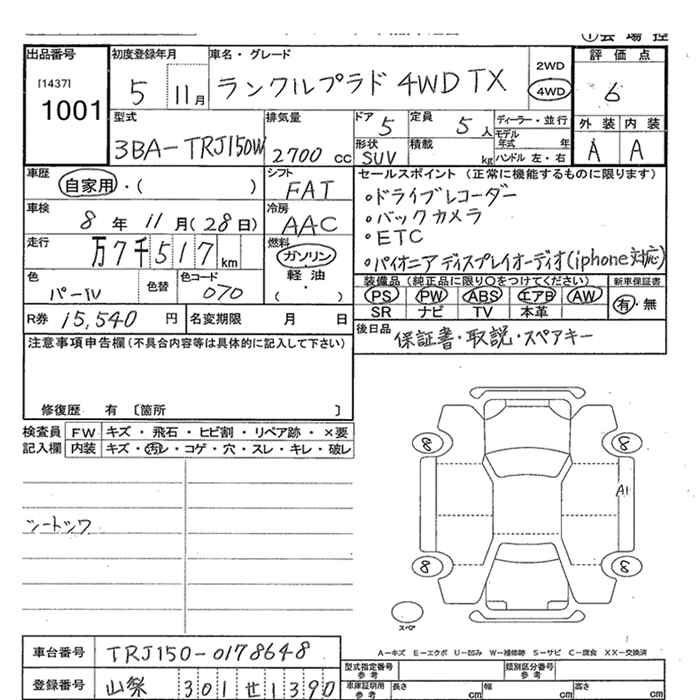 ①会 場 控
出品番号
[1437]
1001
初度登録年月
5 11月
車名・グレード
ランクルプラド 4WD TX
2WD
4WD
評 価 点
6
外 装 内 装
A A
型式
3BA-TRJ150W
排気量
2700 cc
ドア 5
定員 5 人
形状 SUV
積載 kg
ディーラー・並行
モデル年式 年
ハンドル 左・右
車歴
自家用・( )
シフト
FAT
車検
8 年 11 月(28日)
冷房
AAC
走行
万7千517km
燃料
ガソリン
軽 油・
( )
色
パール
色替
色コード
070
R券 15,540 円
名変期限 月 日
セールスポイント (正常に機能するものに限ります)
。ドライブレコーダー
。バックカメラ
。ETC
。パイオニアディスプレイオーディオ(iphone対応)
装備品 (純正品に限り○をつけてください)
PS PW ABS エアB AW
SR ナビ TV 本革
新車保証書
有・無
後日品
保証書・取説・スペアキー
注意事項申告欄(不具合内容等は具体的に記入して下さい)
修復歴 有 〔箇所 〕
検査員 FW キズ・飛石・ヒビ割・リペア跡・×要
記入欄 内装 キズ・汚レ・コゲ・穴・スレ・キレ・破レ
シートシワ
8 8
A1
8 8
スペア
A-キズ E-エクボ U-凹み W-補修跡 S-サビ C-腐食 XX-交換済
車台番号 TRJ150-0178648
登録番号 301 せ1390
型式指定番号 参考
類別区分番号 参考
車庫証明用 参考
長さ cm 幅 cm 高さ cm